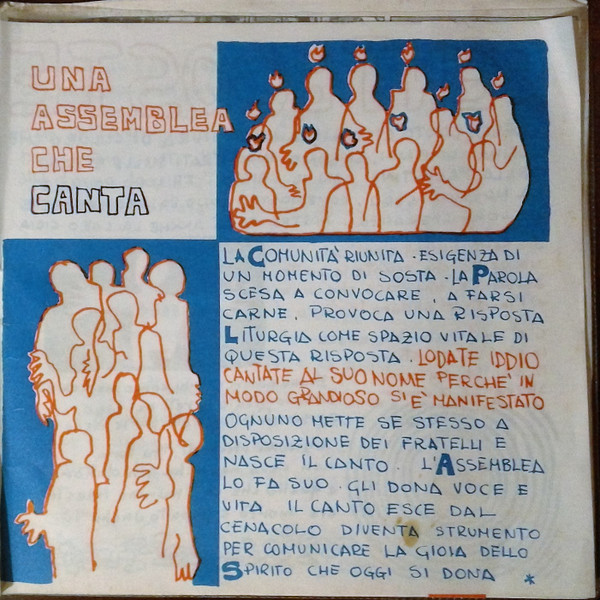 UNA
ASSEMBLEA
CHE
CANTA
LA COMUNITA' RIUNITA · ESIGENZA DI
UN MOMENTO DI SOSTA · LA PAROLA
SCESA A CONVOCARE, A FARSI
CARNE, PROVOCA UNA RISPOSTA
LITURGIA COME SPAZIO VITALE DI
QUESTA RISPOSTA · LODATE IDDIO
CANTATE AL SUO NOME PERCHE' IN
MODO GRANDIOSO SI E' MANIFESTATO
OGNUNO METTE SE STESSO A
DISPOSIZIONE DEI FRATELLI E
NASCE IL CANTO · L'ASSEMBLEA
LO FA SUO · GLI DONA VOCE E
VITA IL CANTO ESCE DAL
CENACOLO DIVENTA STRUMENTO
PER COMUNICARE LA GIOIA DELLO
SPIRITO CHE OGGI SI DONA *